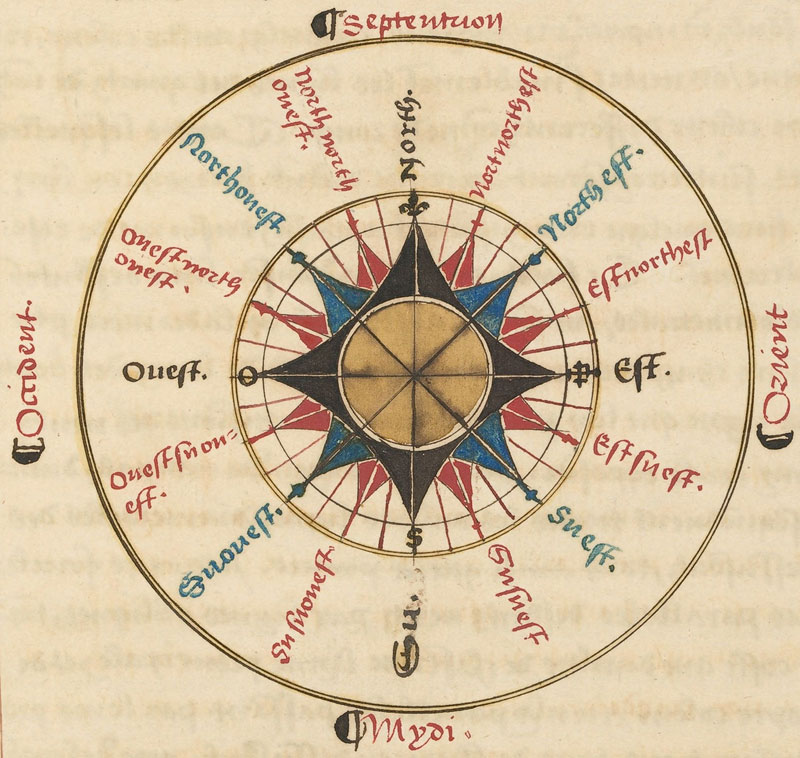 Septentrion
North.
Nortnorthest
Northest.
Estnorthest
Est.
Orient
Estsuest.
Suest.
Susuest
Su.
Mydi.
Susuouest.
Suouest.
Ouestsuou-
est.
Ouest.
Occident.
Ouestnorth
ouest.
Northouest
Northnorth
ouest.
O
S